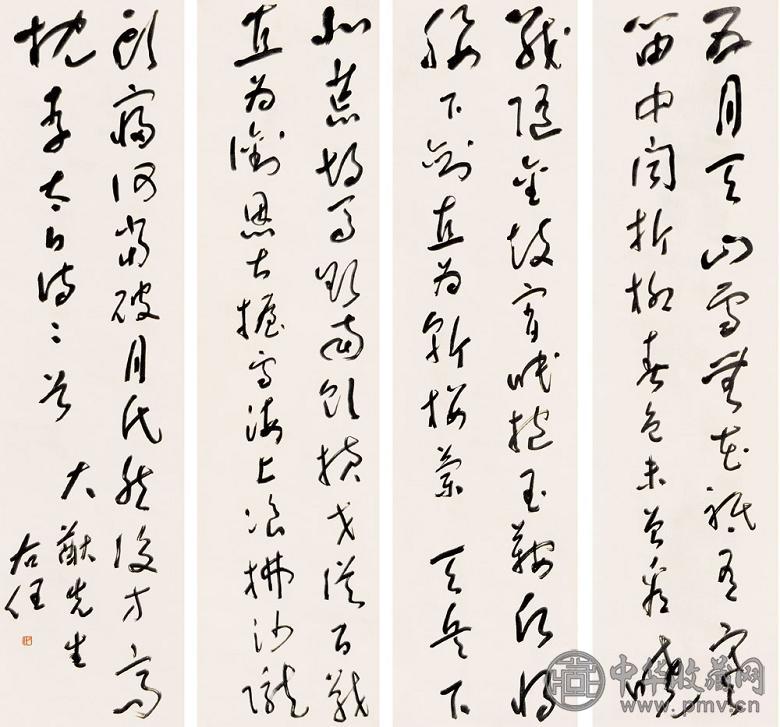 五月天山雪無花祇有寒
笛中聞折柳春色未曾看曉
戰隨金鼓宵眠抱玉鞍願將
腰下劍直為斬樓蘭 天兵下
北荒胡馬欲南飲橫戈從百戰
直為銜恩甚握雪海上飡拂沙隴
頭寢何當破月氏然後方高
枕 李太白詩二首 大猷先生
右任
中华收藏网
www.pmv.cn